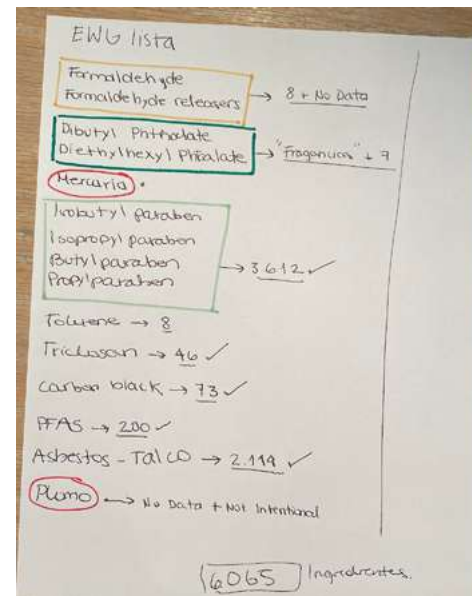 EWG lista
Formaldehyde
Formaldehyde releasers → 8 + No Data
Dibutyl Phthalate
Diethylhexyl Phtalate → "Fragancias" + 7
Mercurio.
Isobutyl paraben
Isopropyl paraben
Butylparaben → 3.612 ✓
Propylparaben
Toluene → 8
Triclosan → 46 ✓
Carbon black → 73 ✓
PFAS → 200 ✓
Asbestos - Talco → 2.119 ✓
Plomo → No Data + Not Intentional
6065 Ingredientes.